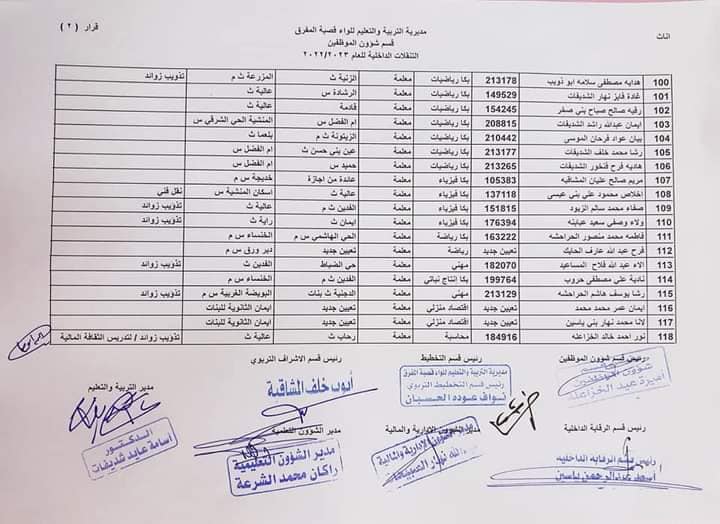 اناث
مديرية التربية والتعليم للواء قصبة المفرق
قرار ( ٢ )
قسم شؤون الموظفين
التنقلات الداخلية للعام ٢٠٢٢/٢٠٢٣
100 هدايه مصطفى سلامه ابو ذويب 213178 بكا رياضيات معلمة الزنية ث المزرعة ث م تذويب زوائد
101 غادة فايز نهار الشديفات 149529 بكا رياضيات معلمة الرشادة س عالية ث
102 رقيه صالح صباح بني صقر 154245 بكا رياضيات معلمة قادمة عالية ث
103 ايمان عبدالله راشد الشديفات 208815 بكا رياضيات معلمة ام الفضل س المنشية الحي الشرقي س
104 بيان عواد فرحان الموسى 210442 بكا رياضيات معلمة الزيتونة ث م بلعما ث
105 رشا محمد خلف الشديفات 213177 بكا رياضيات معلمة عين بني حسن ث ام الفضل س
106 هاديه فرح فنخور الشديفات 213265 بكا رياضيات معلمة حميد س ام الفضل س
107 مريم صالح عليان المشاقبه 105383 بكا فيزياء معلمة عائدة من اجازة خديجة س م
108 اخلاص محمود علي بني عيسى 137118 بكا فيزياء معلمة عالية ث اسكان المنشية س نقل فني
109 صفاء محمد سالم الزيود 151815 بكا فيزياء معلمة الفدين ث عالية ث تذويب زوائد
110 ولاء وصفي سعيد عبابنه 176394 بكا فيزياء معلمة ايمان ث راية ث تذويب زوائد
111 فاطمه محمد منصور الحراحشه 163222 بكا رياضة معلمة الحي الهاشمي س م الخنساء س م
112 فرح عبد الله عارف الحايك تعيين جديد رياضة معلمة تعيين جديد دير ورق س م
113 الاء عبد الله فلاح المساعيد 182070 مهني معلمة حي الضباط الفدين ث تذويب زوائد
114 نادية علي مصطفى حروب 199764 بكا انتاج نباتي معلمة الفدين ث م الخنساء س م
115 رشا يوسف هاشم الحراحشه 213129 مهني معلمة الدجنية ث بنات البويضة الغربية س م تذويب زوائد
116 ايمان عمر محمد محمد تعيين جديد اقتصاد منزلي معلمة تعيين جديد ايمان الثانوية للبنات
117 لانا محمد نهار بني ياسين تعيين جديد اقتصاد منزلي معلمة تعيين جديد ايمان الثانوية للبنات
118 نور احمد خالد الخزاعله 184916 محاسبة معلمة رحاب ث عالية ث تذويب زوائد / لتدريس الثقافة المالية
رئيس قسم شؤون الموظفين
رئيس قسم التخطيط
رئيس قسم الاشراف التربوي
مدير التربية والتعليم
شؤون الموظفين
أميرة عبد الخزاعلة
مديرية التربية والتعليم للواء قصبة المفرق
رئيس قسم التخطيط التربوي
نواف عوده الحسبان
أيوب خلف الشاقبة
الدكتور
أسامة عايد شديفات
رئيس قسم الرقابة الداخلية
مدير الشؤون الادارية والمالية
مدير الشؤون التعليمية
رئيس قسم الرقابه الداخليه
أسعد عبدالرحمن ياسين
مدير الشؤون الادارية والمالية
مدير الشؤون التعليمية
راكان محمد الشرعة